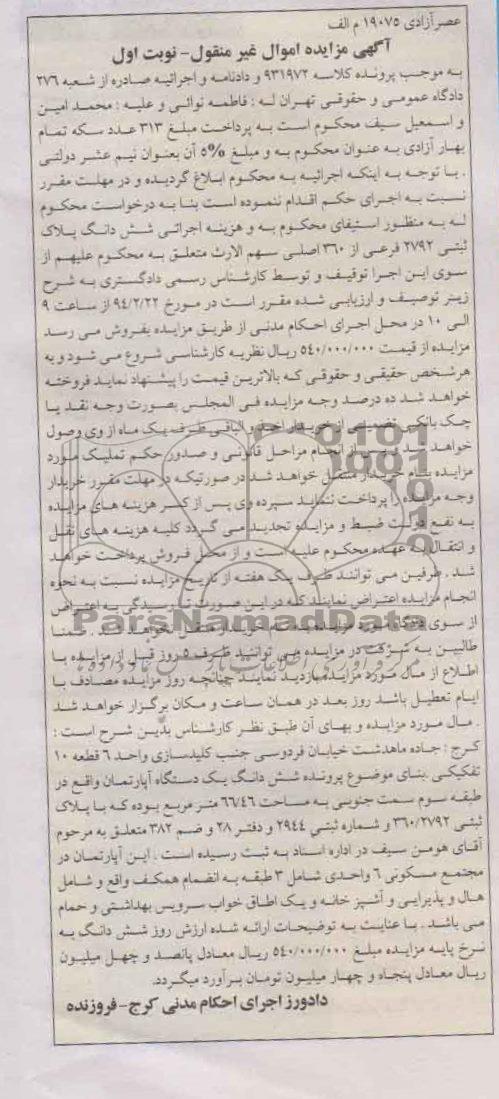 عصرآزادی ۱۹۰۷۵ م الف
آگهی مزایده اموال غیر منقول- نوبت اول
به موجب پرونده کلاسه ۹۳۱۹۷۲ و دادنامه و اجرائیه صادره از شعبه ۲۷۶
دادگاه عمومی و حقوقی تهران له : فاطمه نوائی و علیه : محمد امین
و اسمعیل سیف محکوم است به پرداخت مبلغ ۳۱۳ عدد سکه تمام
بهار آزادی به عنوان محکوم به و مبلغ ۵% آن بعنوان نیم عشر دولتی
. با توجه به اینکه اجرائیه به محکوم ابلاغ گردیده و در مهلت مقرر
نسبت به اجرای حکم اقدام ننموده است بنا به درخواست محکوم
له به منظور استیفای محکوم به و هزینه اجرائی شش دانگ پلاک
ثبتی ۲۷۹۲ فرعی از ۳۶۰ اصلی سهم الارث متعلق به محکوم علیهم از
سوی این اجرا توقیف و توسط کارشناس رسمی دادگستری به شرح
زیر توصیف و ارزیابی شده مقرر است در مورخ ۹۴/۲/۲۲ از ساعت ۹
الی ۱۰ در محل اجرای احکام مدنی از طریق مزایده بفروش می رسد
مزایده از قیمت ۵۴۰/۰۰۰/۰۰۰ ریال نظریه کارشناسی شروع می شود و به
هرشخص حقیقی و حقوقی که بالاترین قیمت را پیشنهاد نماید فروخته
خواهد شد ده درصد وجه مزایده فی المجلس بصورت وجه نقد یا
چک بانکی تضمینی از خریدار اخذ و الباقی ظرف یک ماه از وی وصول
خواهد شد و پس از انجام مراحل قانونی و صدور حکم تملیک مورد
مزایده بنام خریدار منتقل خواهد شد در صورتیکه در مهلت مقرر خریدار
وجه مزایده را پرداخت ننماید سپرده وی پس از کسر هزینه های مزایده
به نفع دولت ضبط و مزایده تجدید می گردد کلیه هزینه های نقل
و انتقال به عهده محکوم علیه است و از محل فروش پرداخت خواهد
شد . طرفین می توانند ظرف یک هفته از تاریخ مزایده نسبت به نحوه
انجام مزایده اعتراض نمایند که در این صورت تا رسیدگی به اعتراض
از سوی دادگاه مورد مزایده به نام خریدار منتقل نخواهد شد . ضمنا
طالبین به شرکت در مزایده می توانند ظرف ۵ روز قبل از مزایده با
اطلاع از مال مورد مزایده بازدید نمایند چنانچه روز مزایده مصادف با
ایام تعطیل باشد روز بعد در همان ساعت و مکان برگزار خواهد شد
. مال مورد مزایده و بهای آن طبق نظر کارشناس بدین شرح است :
کرج : جاده ماهدشت خیابان فردوسی جنب کلیدسازی واحد ۶ قطعه ۱۰
تفکیکی .بنای موضوع پرونده شش دانگ یک دستگاه آپارتمان واقع در
طبقه سوم سمت جنوبی به مساحت ۶۶/۴۶ متر مربع بوده که با پلاک
ثبتی ۳۶۰/۲۷۹۲ و شماره ثبتی ۲۹۴۴ و دفتر ۲۸ و ضم ۳۸۲ متعلق به مرحوم
آقای هومن سیف در اداره اسناد به ثبت رسیده است . این آپارتمان در
مجتمع مسکونی ۶ واحدی شامل ۳ طبقه به انضمام همکف واقع و شامل
هال و پذیرایی و آشپز خانه و یک اطاق خواب سرویس بهداشتی و حمام
می باشد . با عنایت به توضیحات ارائه شده ارزش روز شش دانگ به
نرخ پایه مزایده مبلغ ۵۴۰/۰۰۰/۰۰۰ ریال معادل پانصد و چهل میلیون
ریال معادل پنجاه و چهار میلیون تومان برآورد میگردد.
دادورز اجرای احکام مدنی کرج- فروزنده
ParsNamadData